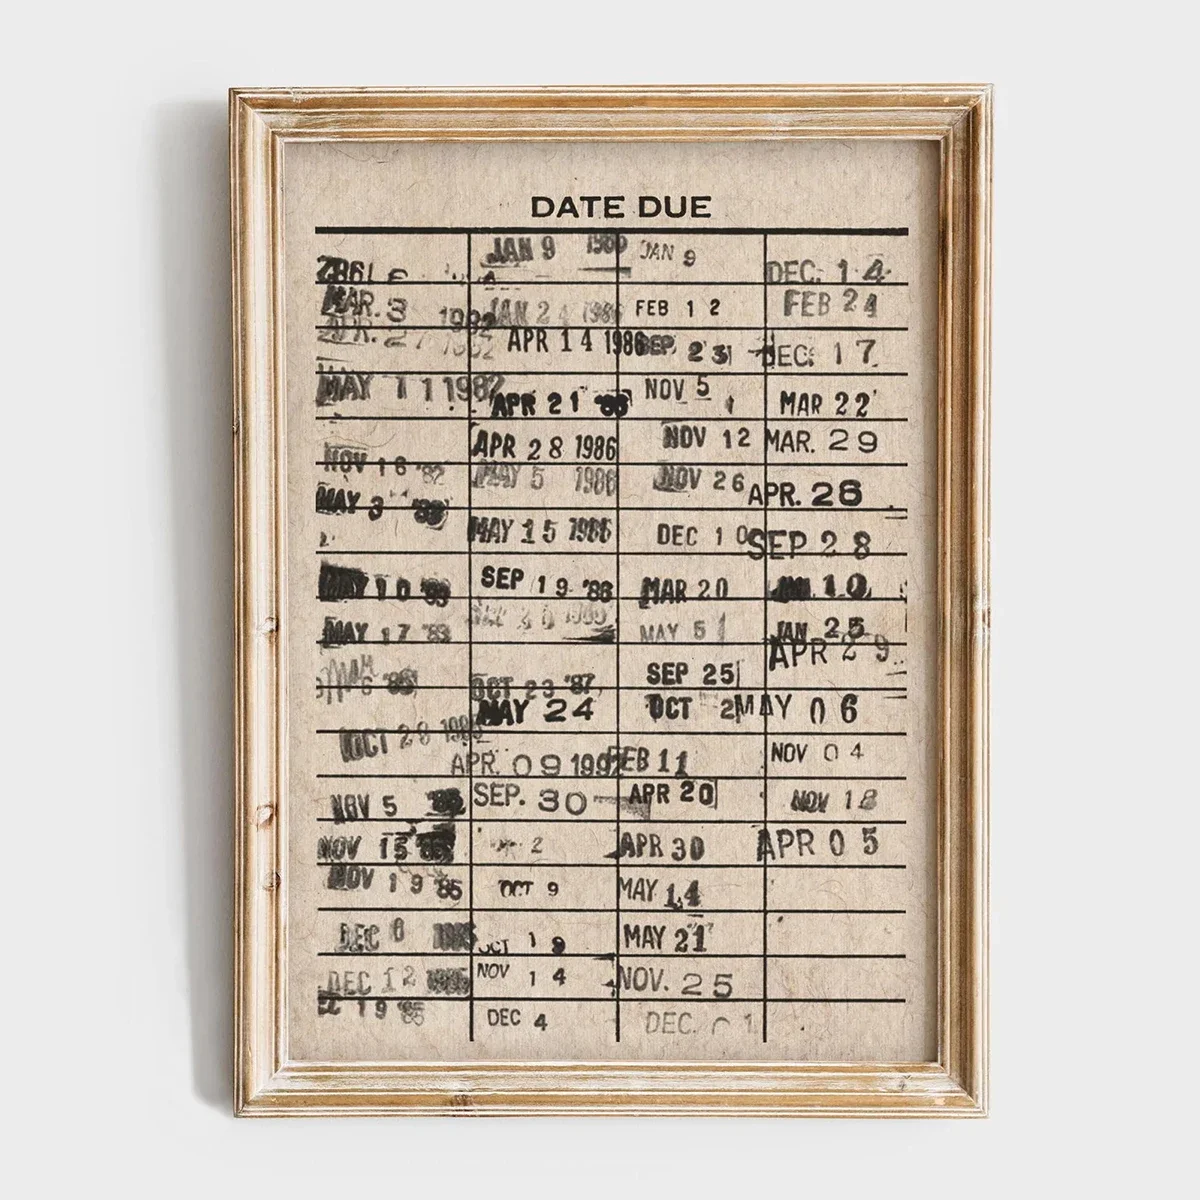 DATE DUE
MAR. 3 1982
APR. 27 1982
MAY 11 1982
NOV 16 '82
MAY 3 '83
MAY 10 '83
MAY 17 '83
OCT 28
NOV 5
NOV 15
NOV 19 '85
DEC 6
DEC 12
19
JAN 9
JAN 24 1986
APR 14 1986
APR 21
APR 28 1986
MAY 5 1986
MAY 15 1986
SEP 19 '86
OCT 23 '87
MAY 24
APR. 09 1992
SEP. 30
2
OCT 9
OCT 1 9
NOV 1 4
DEC 4
JAN 9
FEB 1 2
SEP. 23
NOV 5
NOV 12
NOV 26
DEC 1 0
MAR 20
MAY 5
SEP 25
OCT 2
FEB 11
APR 20
APR 30
MAY 14
MAY 21
NOV. 25
DEC. 1
DEC. 1 4
FEB 24
DEC. 17
MAR 22
MAR. 29
APR. 26
SEP 28
10
JAN 25
APR 29
MAY 06
NOV 04
NOV 18
APR 05